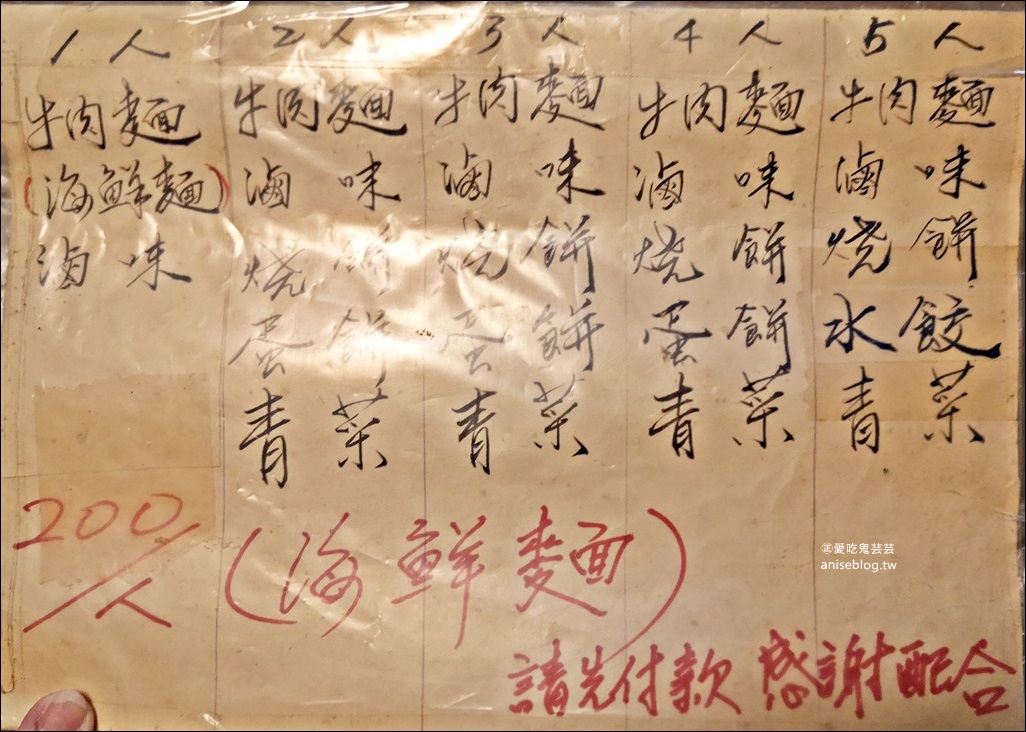 1人 2人 3人 4人 5人
牛肉麵 牛肉麵 牛肉麵 牛肉麵 牛肉麵
(海鮮麵) 滷味 滷味 滷味 滷味
滷味 燒餅 燒餅 燒餅 燒餅
蛋餅 蛋餅 蛋餅 水餃
青菜 青菜 青菜 青菜
200/人 (海鮮麵)
㊣愛吃鬼芸芸
aniseblog.tw
請先付款 感謝配合